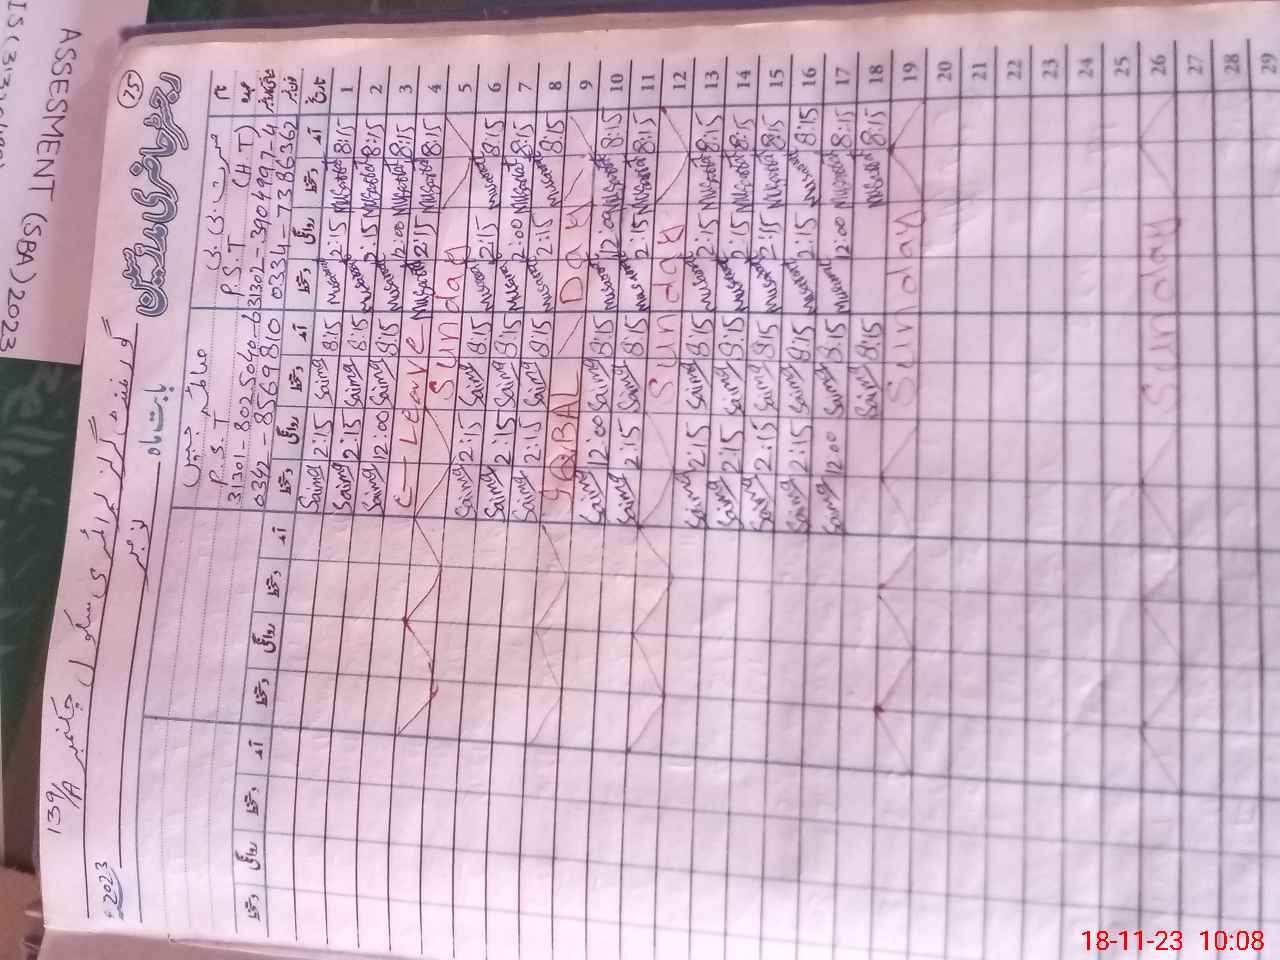 ASSESMENT (SBA) 2023
25
گورنمنٹ گرلز پرائمری سکول چکنمبر 139/A
2023
نومبر
رجسٹر حاضری مدرسین
بابت ماہ
نام مسرت
P.S.T (H.T)
31302-3904997-4
0334-7386362
P.S.T
31301-8025040-6
0342-8569810
تاریخ آمد دستخط روانگی دستخط آمد دستخط روانگی دستخط آمد دستخط روانگی دستخط آمد دستخط روانگی دستخط
1 8:15 Musarat 2:15 Musarat 8:15 Saima 2:15 Saima
2 8:15 Musarat 2:15 Musarat 8:15 Saima 2:15 Saima
3 8:15 Musarat 12:00 Musarat 8:15 Saima 12:00 Saima
4 8:15 Musarat 2:15 Musarat C — Leave
5 Sunday
6 8:15 Musarat 2:15 Musarat 8:15 Saima 2:15 Saima
7 8:15 Musarat 2:00 Musarat 8:15 Saima 2:15 Saima
8 8:15 Musarat 2:15 Musarat 8:15 Saima 2:15 Saima
9 IQBAL Day
10 8:15 Musarat 12:00 Musarat 8:15 Saima 12:00 Saima
11 8:15 Musarat 2:15 Musarat 8:15 Saima 2:15 Saima
12 Sunday
13 8:15 Musarat 2:15 Musarat 8:15 Saima 2:15 Saima
14 8:15 Musarat 2:15 Musarat 8:15 Saima 2:15 Saima
15 8:15 Musarat 2:15 Musarat 8:15 Saima 2:15 Saima
16 8:15 Musarat 2:15 Musarat 8:15 Saima 2:15 Saima
17 8:15 Musarat 12:00 Musarat 8:15 Saima 12:00 Saima
18 8:15 Musarat 8:15 Saima
19 Sunday
20
21
22
23
24
25
26 Sunday
27
28
29
18-11-23 10:08